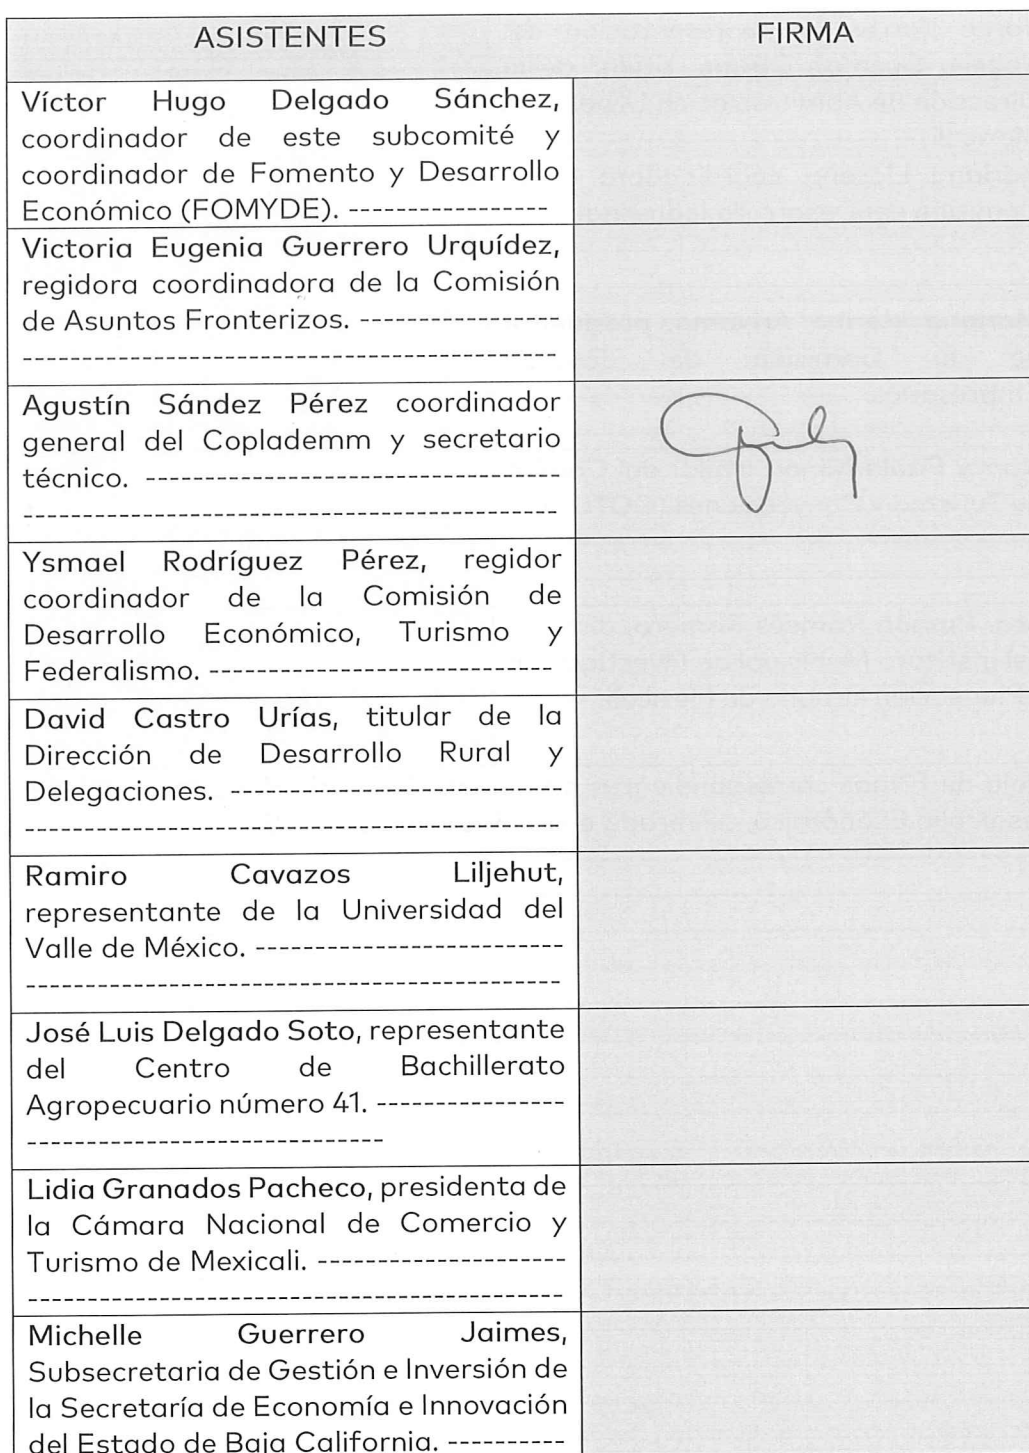 ASISTENTES FIRMA
Víctor Hugo Delgado Sánchez,
coordinador de este subcomité y
coordinador de Fomento y Desarrollo
Económico (FOMYDE). -----------------
Victoria Eugenia Guerrero Urquídez,
regidora coordinadora de la Comisión
de Asuntos Fronterizos. -----------------
---------------------------------------------
Agustín Sández Pérez coordinador
general del Coplademm y secretario
técnico. -----------------------------------
---------------------------------------------
Ysmael Rodríguez Pérez, regidor
coordinador de la Comisión de
Desarrollo Económico, Turismo y
Federalismo. -----------------------------
David Castro Urías, titular de la
Dirección de Desarrollo Rural y
Delegaciones. ----------------------------
---------------------------------------------
Ramiro Cavazos Liljehut,
representante de la Universidad del
Valle de México. --------------------------
---------------------------------------------
José Luis Delgado Soto, representante
del Centro de Bachillerato
Agropecuario número 41. ----------------
------------------------------
Lidia Granados Pacheco, presidenta de
la Cámara Nacional de Comercio y
Turismo de Mexicali. ---------------------
---------------------------------------------
Michelle Guerrero Jaimes,
Subsecretaria de Gestión e Inversión de
la Secretaría de Economía e Innovación
del Estado de Baja California. ----------